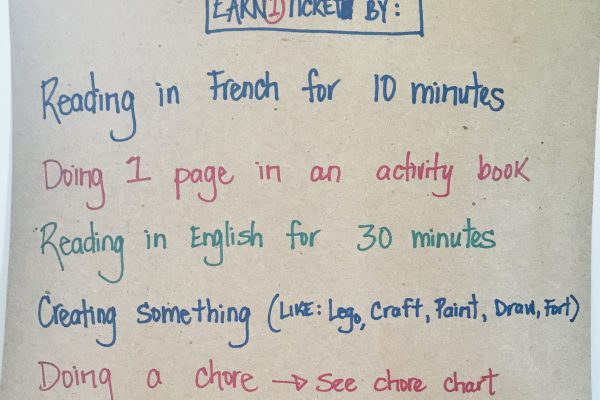 EARN 1 TICKET BY:
Reading in French for 10 minutes
Doing 1 page in an activity book
Reading in English for 30 minutes
Creating something (LIKE: Lego, Craft, Paint, Draw, Fort)
Doing a chore → See chore chart